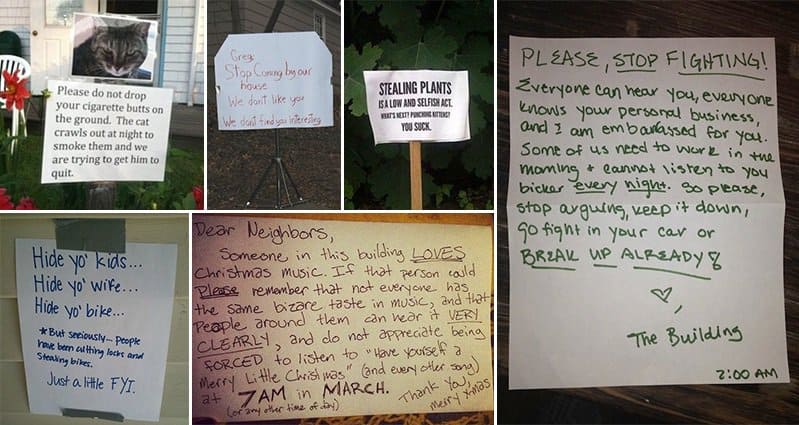 Please do not drop
your cigarette butts on
the ground. The cat
crawls out at night to
smoke them and we
are trying to get him to
quit.
Greg:
Stop Coming by our
house
We don't like you
We don't find you Interesting
STEALING PLANTS
IS A LOW AND SELFISH ACT.
WHAT'S NEXT? PUNCHING KITTENS?
YOU SUCK.
PLEASE, STOP FIGHTING!
Everyone can hear you, everyone
knows your personal business,
and I am embarassed for you.
Some of us need to work in the
morning + cannot listen to you
bicker every night. So please,
stop arguing, keep it down,
go fight in your car or
BREAK UP ALREADY!
♡,
The Building
2:00 AM
Hide yo' kids...
Hide yo' wife...
Hide yo' bike...
*But seriously... people
have been cutting locks and
Stealing bikes.
Just a little FYI.
Dear Neighbors,
Someone in this building LOVES
Christmas music. If that person could
Please remember that not everyone has
the same bizare taste in music, and that
People around them can hear it VERY
CLEARLY, and do not appreciate being
FORCED to listen to "Have yourself a
Merry Little Christmas" (and every other song)
at 7AM in MARCH.
(or any other time of day)
Thank you,
merry xmas